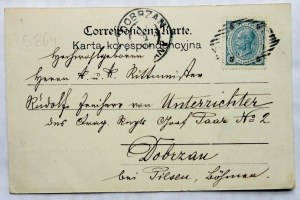 5864
DOBRZAN
Correspondenz-Karte.
Karta korespondencyjna
Hochwohlgeboren
Herrn K. u. K. Rittmeister
Rudolf Freiherr von Unterrichter
des Drag. Regts Graf Paar No 2
Dobrzan
bei Pilsen, Böhmen.